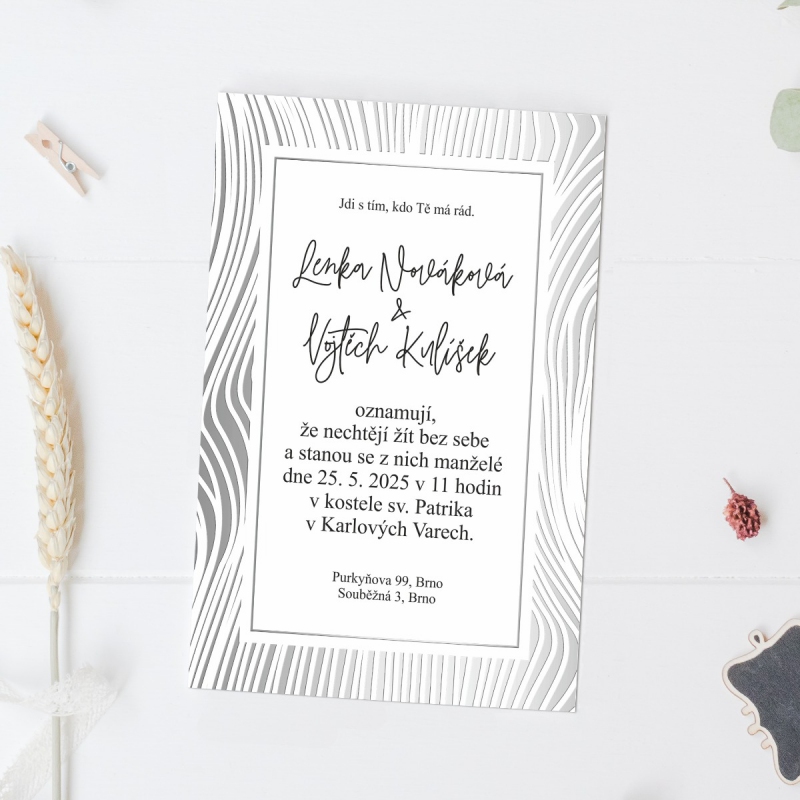 Jdi s tím, kdo Tě má rád.
Lenka Nováková
&
Vojtěch Kulíšek
oznamují,
že nechtějí žít bez sebe
a stanou se z nich manželé
dne 25. 5. 2025 v 11 hodin
v kostele sv. Patrika
v Karlových Varech.
Purkyňova 99, Brno
Souběžná 3, Brno